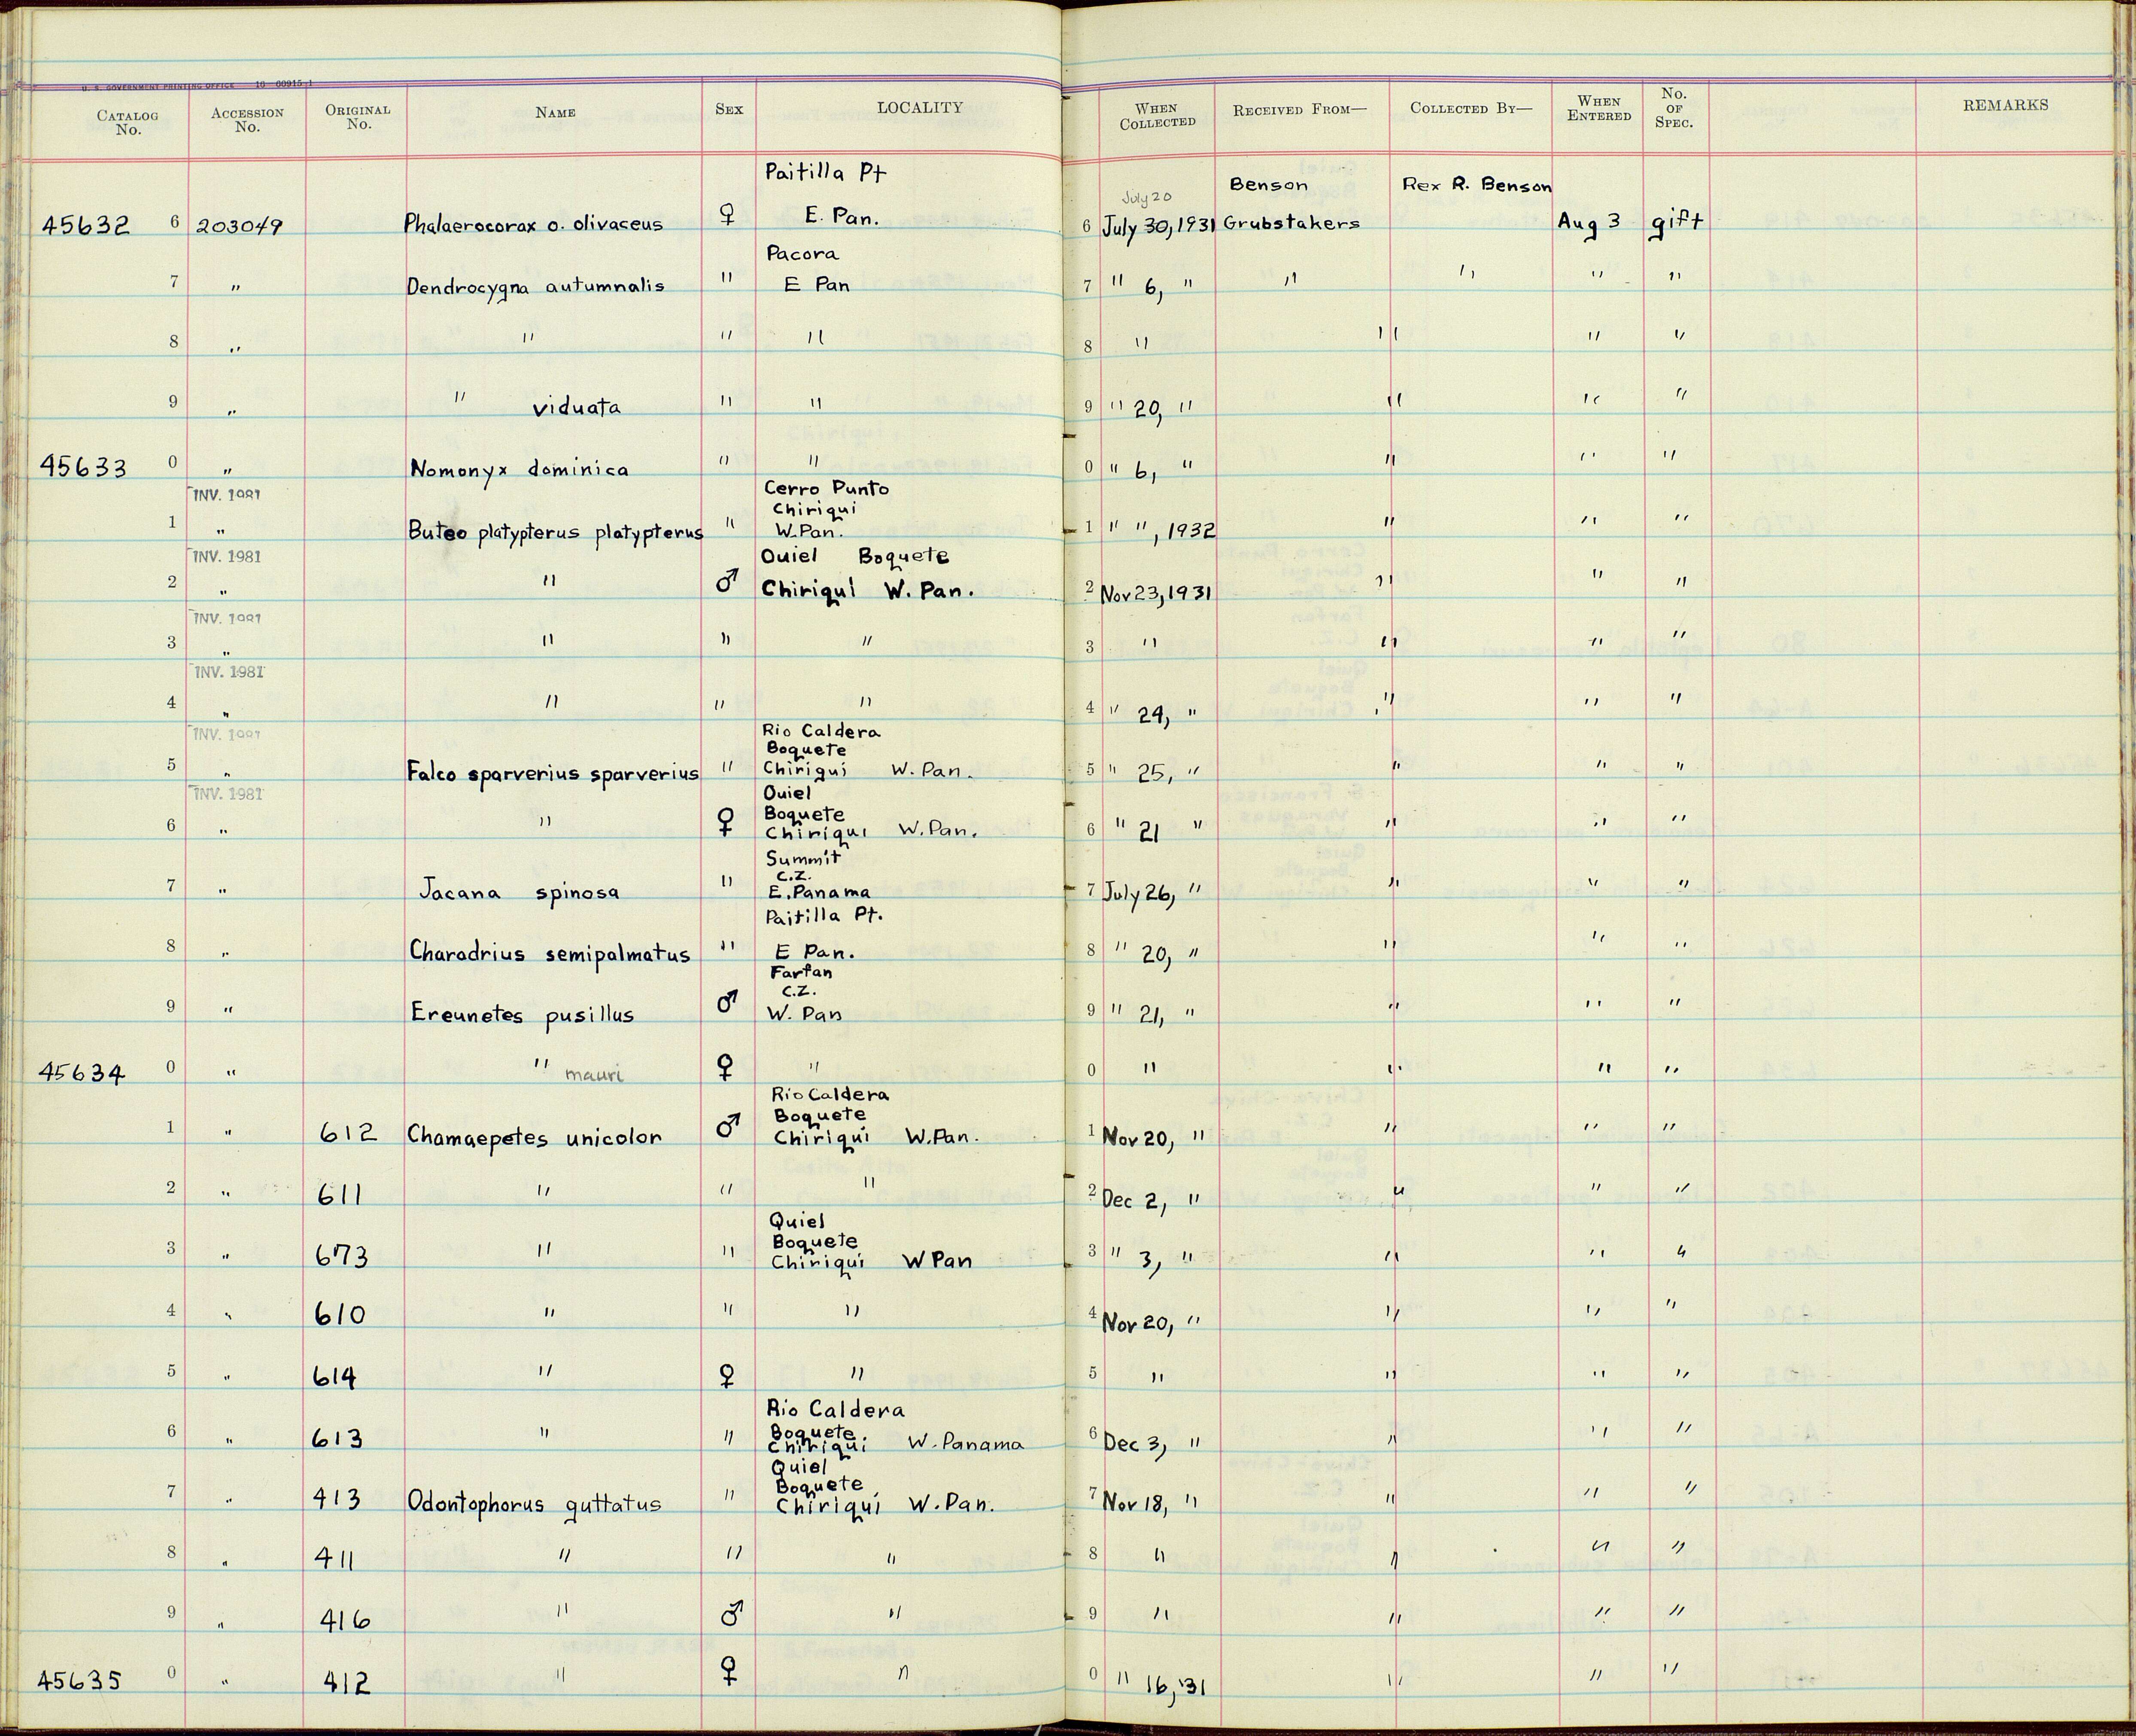 U. S. GOVERNMENT PRINTING OFFICE 16—60915-1
CATALOG No. ACCESSION No. ORIGINAL No. NAME SEX LOCALITY WHEN COLLECTED RECEIVED FROM— COLLECTED BY— WHEN ENTERED No. OF SPEC. REMARKS
Paitilla Pt
July 20 Benson Rex R. Benson
45632 6 203049 Phalaerocorax o. olivaceus ♀ E. Pan. 6 July 30, 1931 Grubstakers Aug 3 gift
Pacora
7 " Dendrocygna autumnalis " E Pan 7 " 6, " " " " "
8 " " " " 8 " " " "
9 " " viduata " " 9 " 20, " " " "
45633 0 " Nomonyx dominica " " 0 " 6, " " " "
INV. 1981 Cerro Punto
Chiriqui
1 " Buteo platypterus platypterus " W.Pan. 1 " ", 1932 " " "
INV. 1981 Ouiel Boquete
2 " " ♂ Chiriqui W. Pan. 2 Nov 23, 1931 " " "
INV. 1981
3 " " " " 3 " " " "
INV. 1981
4 " " " " 4 " 24, " " " "
INV. 1981 Rio Caldera
Boquete
5 " Falco sparverius sparverius " Chiriqui W. Pan. 5 " 25, " " " "
INV. 1981 Ouiel
Boquete
6 " " ♀ Chiriqui W. Pan. 6 " 21 " " " "
Summit
C.Z.
7 " Jacana spinosa " E. Panama 7 July 26, " " " "
Paitilla Pt.
8 " Charadrius semipalmatus " E Pan. 8 " 20, " " " "
Farfan
C.Z.
9 " Ereunetes pusillus ♂ W. Pan 9 " 21, " " " "
45634 0 " " mauri ♀ " 0 " " " "
Rio Caldera
Boquete
1 " 612 Chamaepetes unicolor ♂ Chiriqui W.Pan. 1 Nov 20, " " " "
2 " 611 " " " 2 Dec 2, " " " "
Quiel
Boquete
3 " 673 " " Chiriqui W Pan 3 " 3, " " " "
4 " 610 " " " 4 Nov 20, " " " "
5 " 614 " ♀ " 5 " " " "
Rio Caldera
Boquete
6 " 613 " " Chiriqui W. Panama 6 Dec 3, " " " "
Quiel
Boquete
7 " 413 Odontophorus guttatus " Chiriqui W. Pan. 7 Nov 18, " " " "
8 " 411 " " " 8 " " " "
9 " 416 " ♂ " 9 " " " "
45635 0 " 412 " ♀ " 0 " 16, '31 " " "